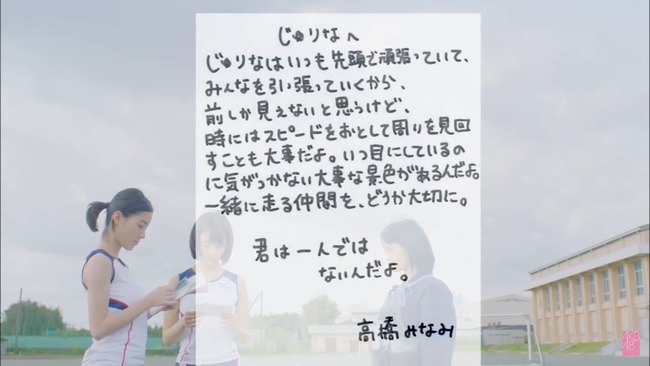 じゅりなへ
じゅりなはいつも先頭で頑張っていて、
みんなを引っ張っていくから、
前しか見えないと思うけど、
時にはスピードをおとして周りを見回
すことも大事だよ。いつ目にしているの
に気がつかない大事な景色があるんだよ。
一緒に走る仲間を、どうか大切に。
君は一人では
ないんだよ。
高橋みなみ
AKB
48